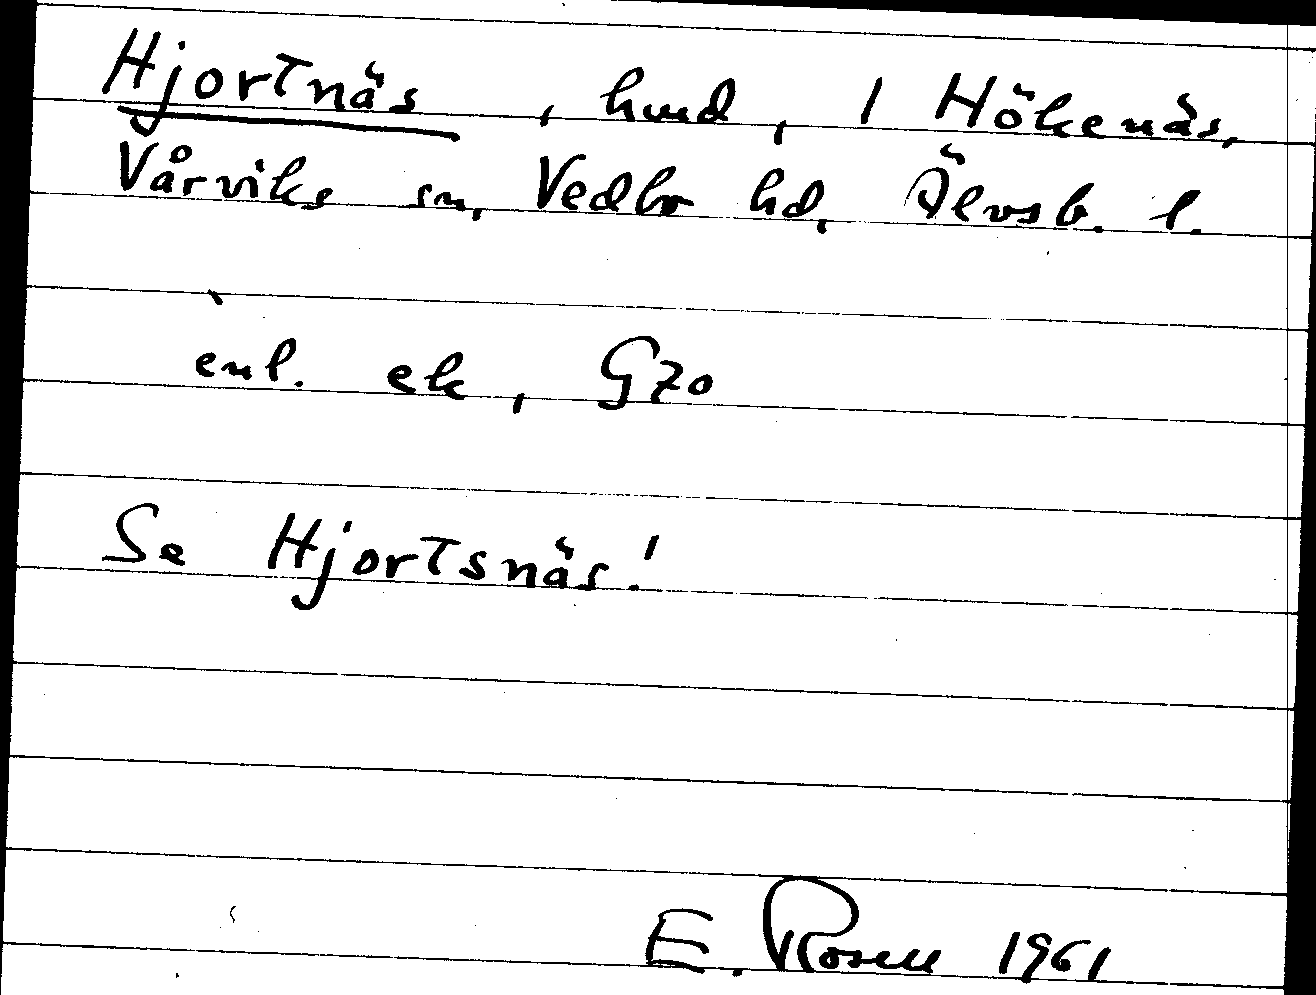 Hjortnäs, hmd, 1 Hökenäs,
Vårviks sn, Vedbo hd, Älvsb. l.
enl. ek, G70
Se Hjortsnäs!
E. Rosell 1961